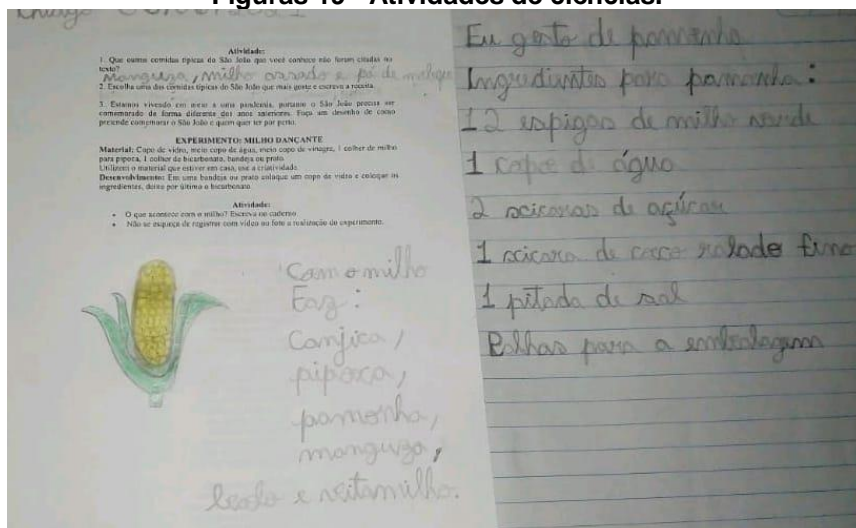 Figuras 10 - Atividades de ciências.
Atividade:
1. Que outras comidas típicas do São João que você conhece não foram citadas no
texto?
Manguza, milho assado e pé de moleque
2. Escolha uma das comidas típicas do São João que mais goste e escreva a receita.
3. Estamos vivendo em meio a uma pandemia, portanto o São João precisa ser
comemorado de forma diferente dos anos anteriores. Faça um desenho de como
pretende comemorar o São João e quem quer ter por perto.
EXPERIMENTO: MILHO DANÇANTE
Material: Copo de vidro, meio copo de água, meio copo de vinagre, 1 colher de milho
para pipoca, 1 colher de bicarbonato, bandeja ou prato.
Utilizem o material que estiver em casa, use a criatividade.
Desenvolvimento: Em uma bandeja ou prato coloque um copo de vidro e coloque os
ingredientes, deixe por último o bicarbonato.
Atividade:
• O que acontece com o milho? Escreva no caderno
• Não se esqueça de registrar com vídeo ou foto a realização do experimento.
Com o milho
Faz:
Canjica,
pipoca,
pamonha,
manguza,
e
Eu gosto de pamonha
Ingredientes para pamonha:
12 espigas de milho verde
1 copo de água
2 xicaras de açúcar
1 xicara de coco ralado fino
1 pitada de sal
Palhas para a embalagem